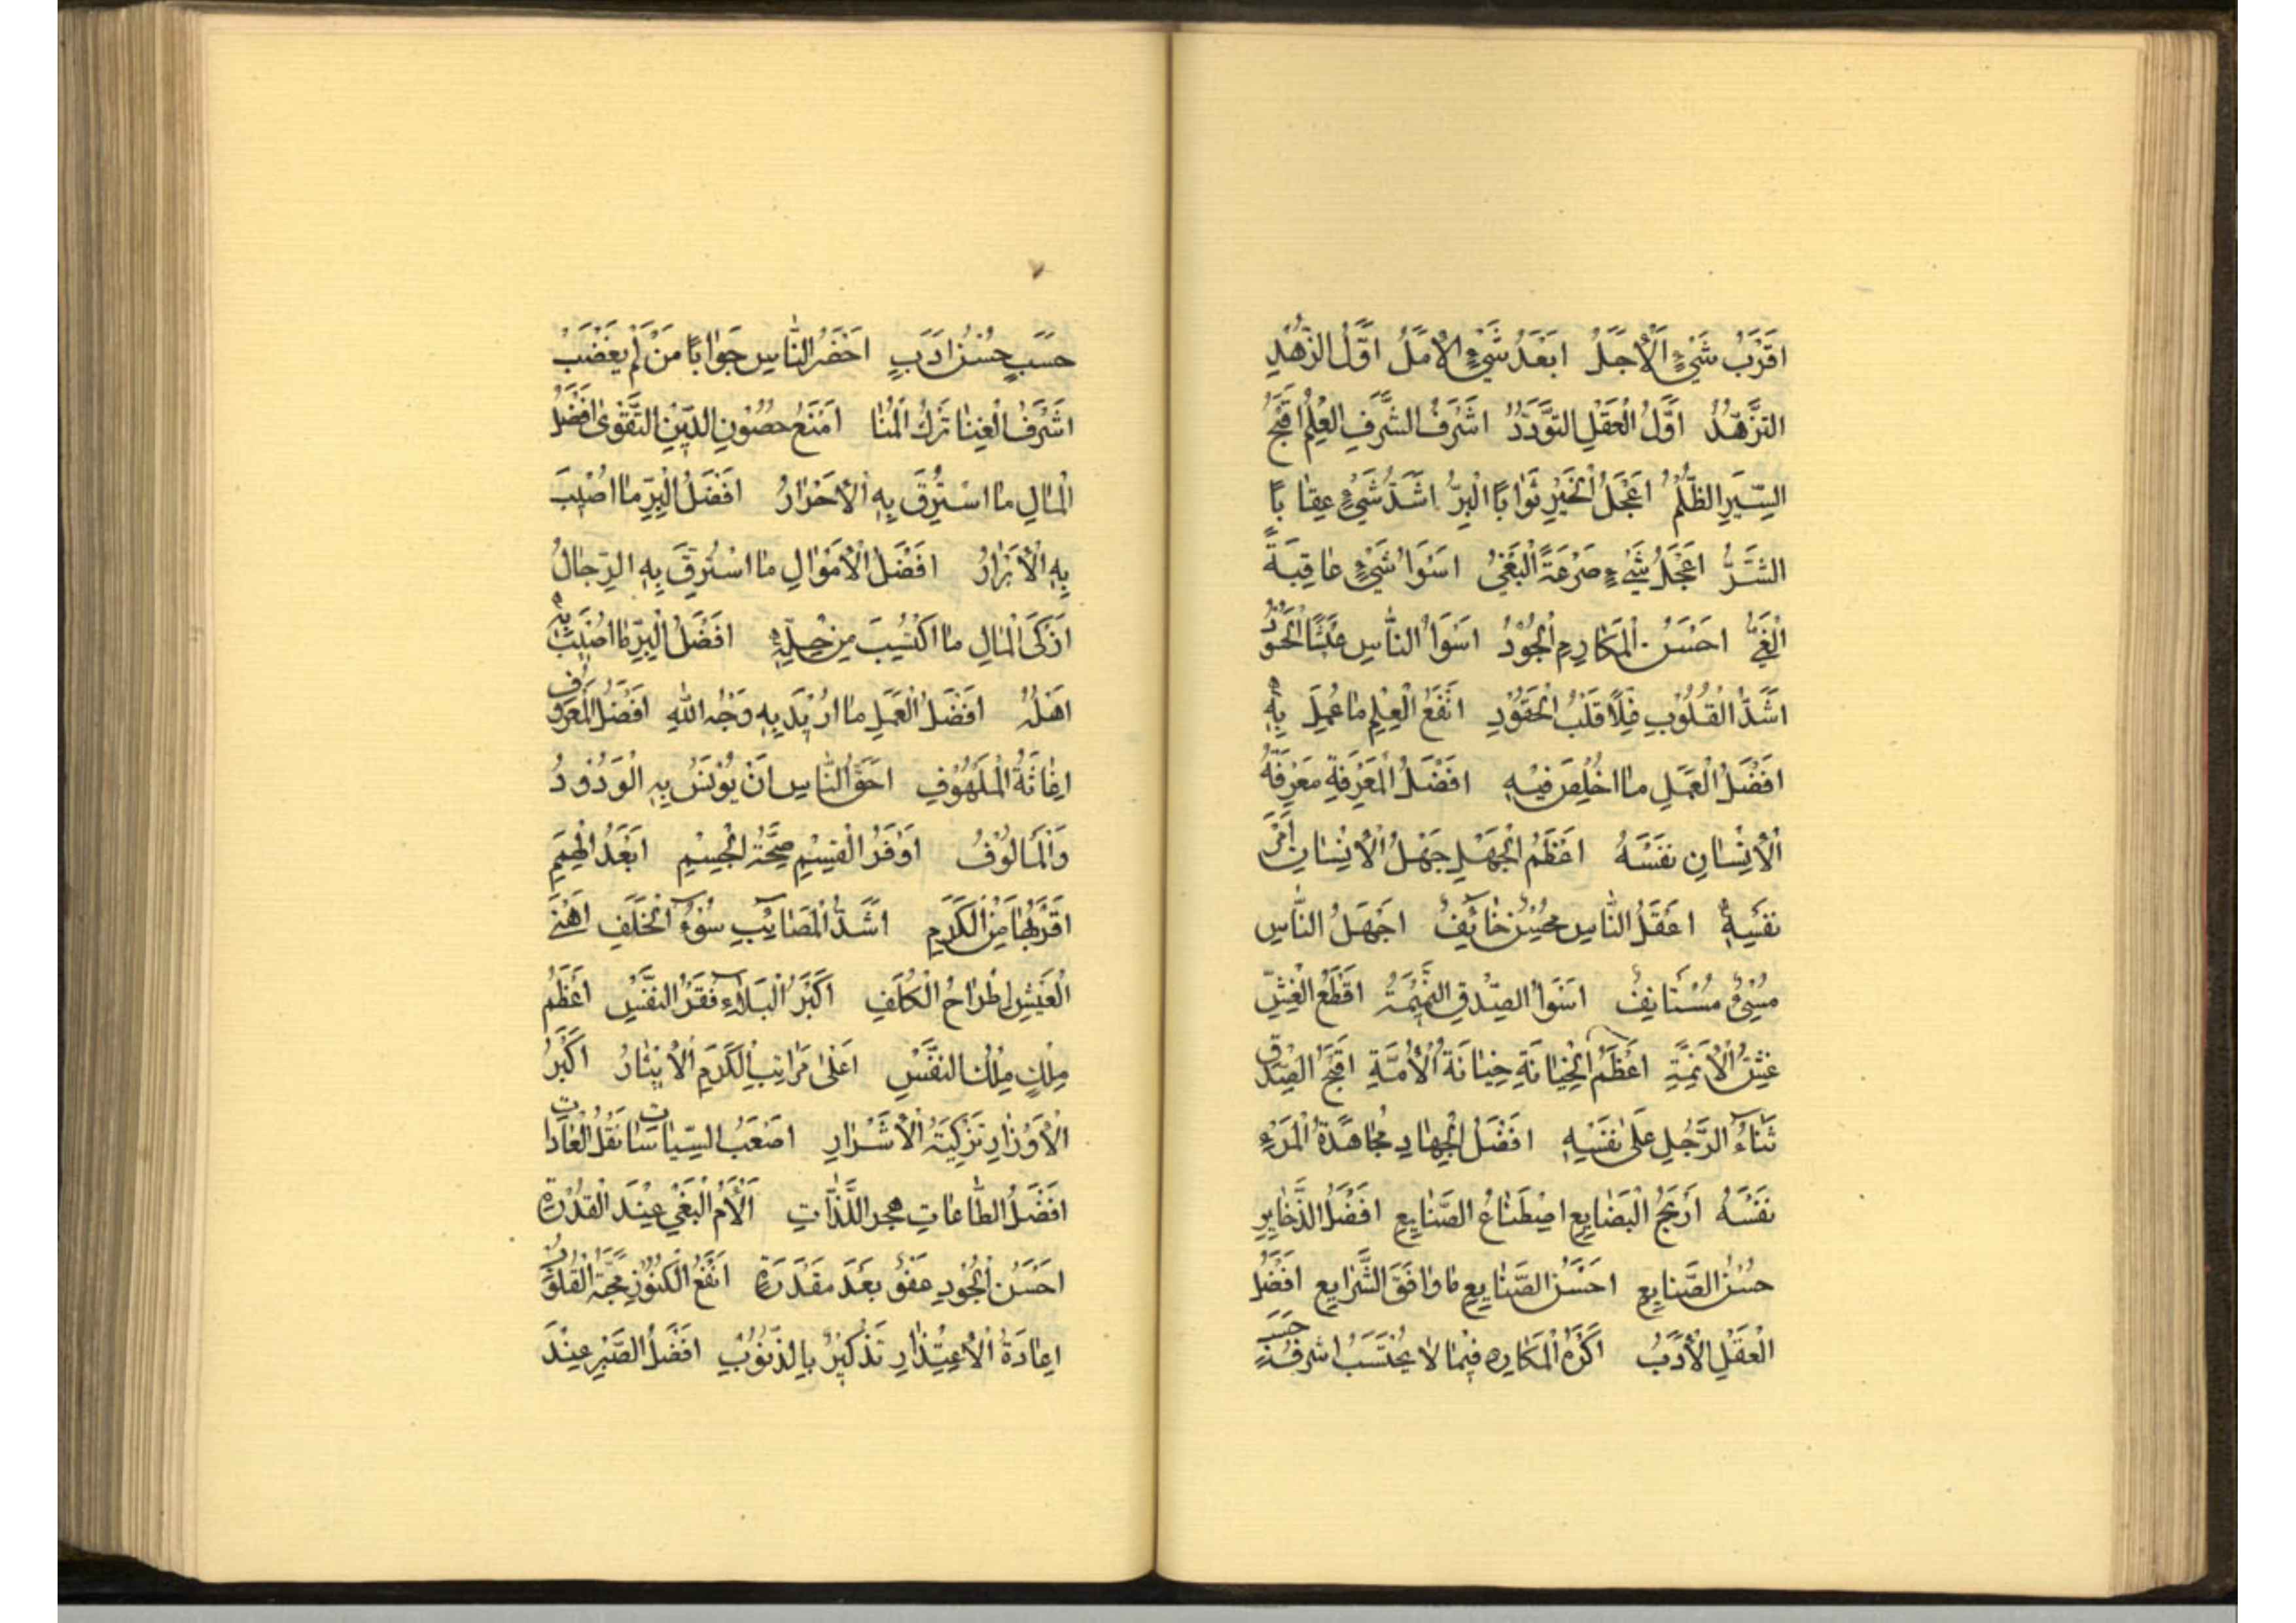 اَقْرَبُ شَيْءٍ الْأَجَلُ اَبْعَدُ شَيْءٍ الْأَمَلُ اَوَّلُ الزُّهْدِ
التَّزَهُّدُ اَوَّلُ الْعَقْلِ التَّوَدُّدُ اَشْرَفُ الشَّرَفِ الْعِلْمُ اَقْبَحُ
السِّيَرِ الظُّلْمُ اَعْجَلُ الْخَيْرِ ثَوَابًا الْبِرُّ اَشَدُّ شَيْءٍ عِقَابًا
الشَّرُّ اَعْجَلُ شَيْءٍ صَرْعَةً الْبَغْيُ اَسْوَأُ شَيْءٍ عَاقِبَةً
الْغَيُّ اَحْسَنُ الْمَكَارِمِ الْجُوْدُ اَسْوَأُ النَّاسِ عَيْشًا الْحَسُوْدُ
اَشَدُّ الْقُلُوْبِ غِلًّا قَلْبُ الْحَقُوْدِ اَنْفَعُ الْعِلْمِ مَا عُمِلَ بِهِ
اَفْضَلُ الْعَمَلِ مَا اُخْلِصَ فِيْهِ اَفْضَلُ الْمَعْرِفَةِ مَعْرِفَةُ
الْأِنْسَانِ نَفْسَهُ اَعْظَمُ الْجَهْلِ جَهْلُ الْأِنْسَانِ اَمْرَ
نَفْسِهِ اَعْقَلُ النَّاسِ مُحْسِنٌ خَائِفٌ اَجْهَلُ النَّاسِ
مُسِيْءٌ مُسْتَانِفٌ اَسْوَأُ الصِّدْقِ النَّمِيْمَةُ اَفْظَعُ الْغِشِّ
غِشُّ الْأَئِمَّةِ اَعْظَمُ الْخِيَانَةِ خِيَانَةُ الْأُمَّةِ اَقْبَحُ الصِّدْقِ
ثَنَاءُ الرَّجُلِ عَلَى نَفْسِهِ اَفْضَلُ الْجِهَادِ مُجَاهَدَةُ الْمَرْءِ
نَفْسَهُ اَرْبَحُ الْبَضَايِعِ اصْطِنَاعُ الصَّنَايِعِ اَفْضَلُ الذَّخَايِرِ
حُسْنُ الصَّنَايِعِ اَحْسَنُ الصَّنَايِعِ مَا وَافَقَ الشَّرَايِعِ اَفْضَلُ
الْعَقْلِ الْأَدَبُ اَكْرَهُ الْمَكَارِهِ فِيْمَا لَا يُحْتَسَبُ اَشْرَفُ
حَسَبٍ حُسْنُ اَدَبٍ اَحْضَرُ النَّاسِ جَوَابًا مَنْ لَمْ يَغْضَبْ
اَشْرَفُ الْغِنَا تَرْكُ الْمُنَا اَمْنَعُ حُصُوْنِ الدِّيْنِ التَّقْوَى اَفْضَلُ
الْمَالِ مَا اسْتُرِقَّ بِهِ الْأَحْرَارُ اَفْضَلُ الْبِرِّ مَا اُصِيْبَ
بِهِ الْأَبْرَارُ اَفْضَلُ الْأَمْوَالِ مَا اسْتُرِقَّ بِهِ الرِّجَالُ
اَزْكَى الْمَالِ مَا اكْتُسِبَ مِنْ حِلِّهِ اَفْضَلُ الْبِرِّ مَا اُصِيْبَ بِهِ
اَهْلُهُ اَفْضَلُ الْعَمَلِ مَا اُرِيْدَ بِهِ وَجْهُ اللهِ اَفْضَلُ الْمَعْرُوْفِ
اِغَاثَةُ الْمَلْهُوْفِ اَحَقُّ النَّاسِ اَنْ يُوْنَسَ بِهِ الْوَدُوْدُ
وَالْمَالُوْفُ اَوْفَرُ الْقِسْمِ صِحَّةُ الْجِسْمِ اَبْعَدُ الْهِمَمِ
اَقْرَبُهَا مِنَ الْكَرَمِ اَشَدُّ الْمَصَائِبِ سُوْءُ الْخَلَفِ اَهْنَى
الْعَيْشِ اِطْرَاحُ الْكُلَفِ اَكْبَرُ الْبَلَاءِ فَقْرُ النَّفْسِ اَعْظَمُ
مِلْكٍ مِلْكُ النَّفْسِ اَعْلَى مَرَاتِبِ الْكَرَمِ الْأِيْثَارُ اَكْبَرُ
الْأَوْزَارِ تَزْكِيَةُ الْأَشْرَارِ اَصْعَبُ السِّيَاسَاتِ نَقْلُ الْعَادَاتِ
اَفْضَلُ الطَّاعَاتِ هَجْرُ اللَّذَّاتِ اَلْأَمُ الْبَغْيِ عِنْدَ الْقُدْرَةِ
اَحْسَنُ الْجُوْدِ عَفْوٌ بَعْدَ مَقْدَرَةٍ اَنْفَعُ الْكُنُوْزِ مَحَبَّةُ الْقُلُوْبِ
اِعَادَةُ الْأِعْتِذَارِ تَذْكِيْرٌ بِالذُّنُوْبِ اَفْضَلُ الصَّبْرِ عِنْدَ